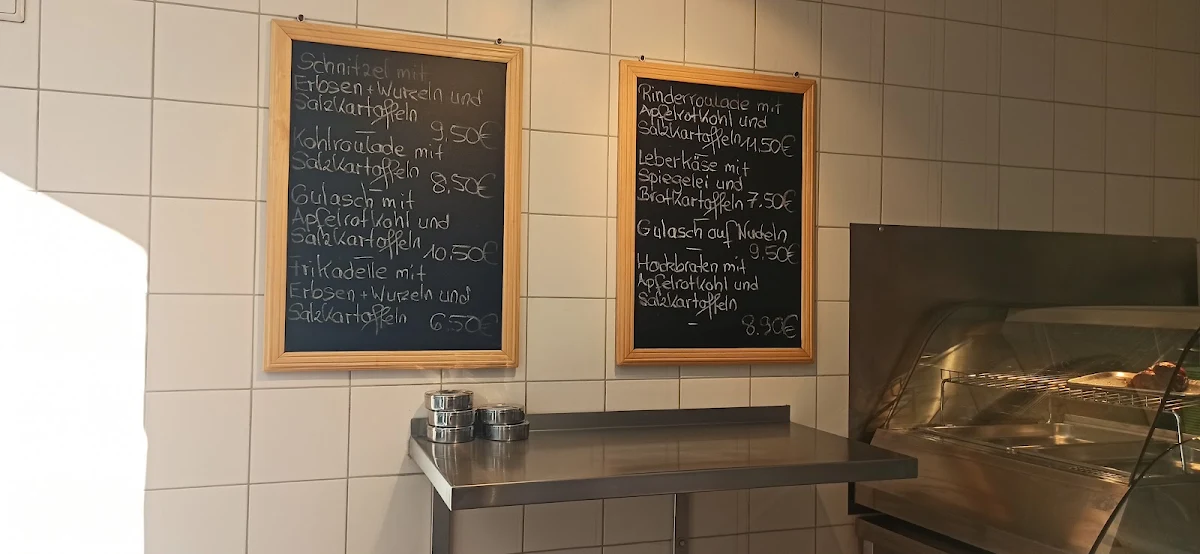 Schnitzel mit
Erbsen + Wurzeln und
Salzkartoffeln
9,50€
Kohlroulade mit
Salzkartoffeln
8,50€
Gulasch mit
Apfelrotkohl und
Salzkartoffeln 10,50€
Frikadelle mit
Erbsen + Wurzeln und
Salzkartoffeln 6.50€
Rinderroulade mit
Apfelrotkohl und
Salzkartoffeln 11,50€
Leberkäse mit
Spiegelei und
Bratkartoffeln 7.50€
Gulasch auf Nudeln
9,50€
Hackbraten mit
Apfelrotkohl und
Salzkartoffeln
8.90€